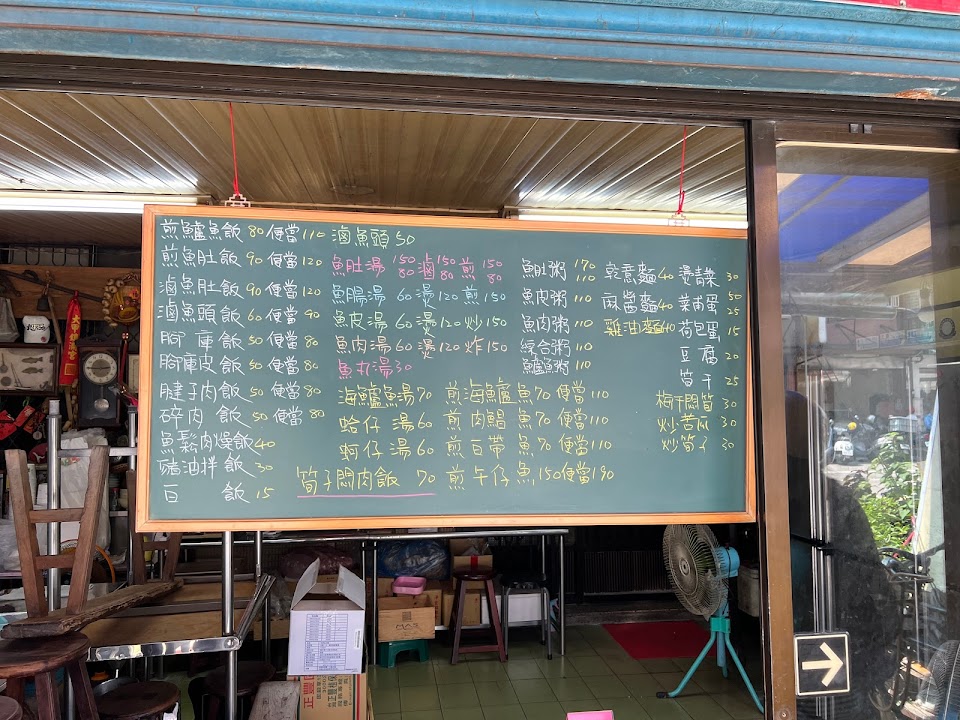 煎鱸魚飯 80 便當 110
煎魚肚飯 90 便當 120
滷魚肚飯 90 便當 120
滷魚頭飯 60 便當 90
腳庫飯 50 便當 80
腳庫皮飯 50 便當 80
腱子肉飯 50 便當 80
碎肉飯 50 便當 80
魚鬆肉燥飯 40
豬油拌飯 30
白飯 15
滷魚頭 50
魚肚湯 150 80 滷 150 80 煎 150
魚腸湯 60 燙 120 煎 150
魚皮湯 60 燙 120 炒 150
魚肉湯 60 燙 120 炸 150
魚丸湯 30
海鱸魚湯 70
蛤仔湯 60
蚵仔湯 60
筍子悶肉飯 70
煎海鱸魚 70 便當 110
煎肉鯧魚 70 便當 110
煎白帶魚 70 便當 110
煎午仔魚 150 便當 190
魚肚粥 170 110
魚皮粥 110
魚肉粥 110
綜合粥 110
鱸魚粥 110
乾意麵 40
麻醬麵 40
雞油麵 40
燙青菜 30
菜甫蛋 50 25
荷包蛋 15
豆腐 20
筍干 25
梅干悶筍 30
炒苦瓜 30
炒筍子 30